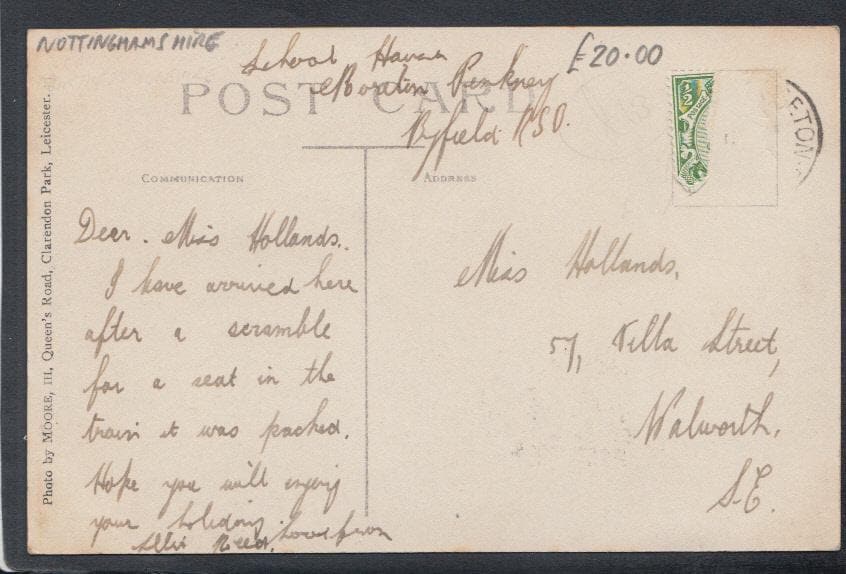 NOTTINGHAMSHIRE
£20.00
School House
Moreton Pinkney
Byfield R.S.O.
POST CARD
½
POSTAGE
ETON
COMMUNICATION
ADDRESS
Photo by MOORE, 111, Queen's Road, Clarendon Park, Leicester.
Dear. Miss Hollands.
I have arrived here
after a scramble
for a seat in the
train it was packed.
Hope you will enjoy
your holiday.
love from
Reed.
Miss Hollands,
57, Villa Street,
Walworth,
S.E.